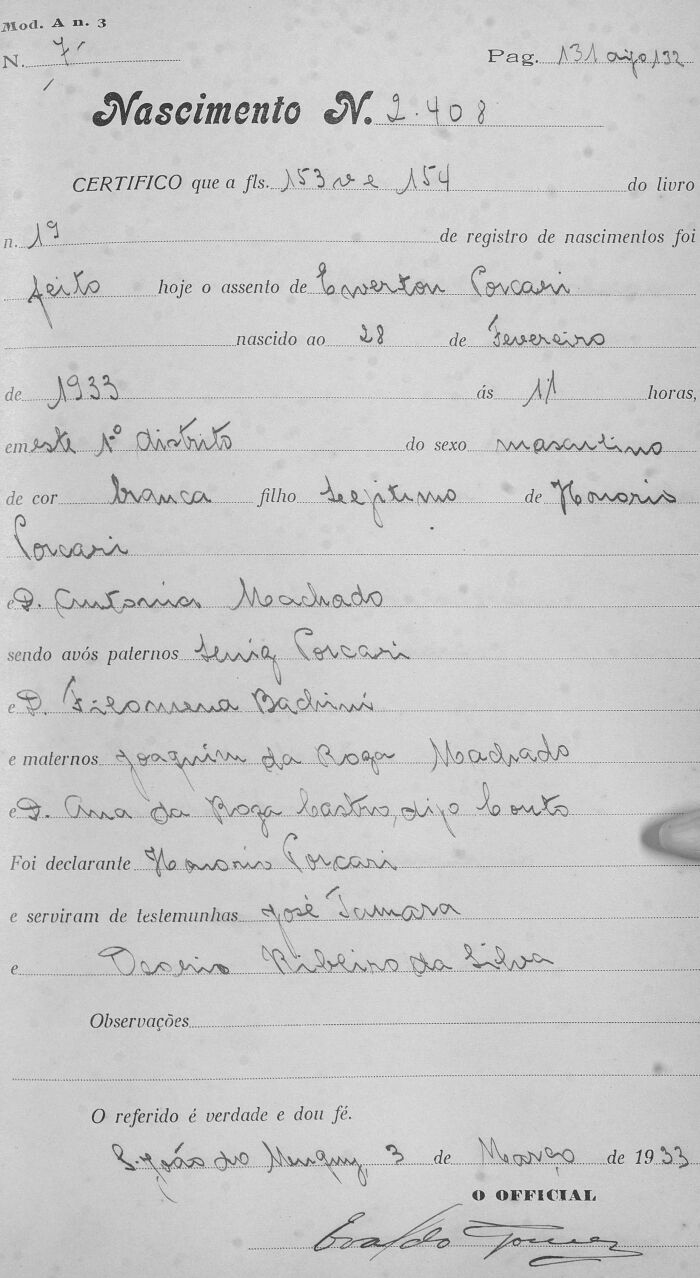 Mod. A n. 3
N. 7 Pag. 131
Nascimento N. 2.408
CERTIFICO que a fls. 153 v e 154 do livro
n. 19 de registro de nascimentos foi
feito hoje o assento de Ewerton Porcari
nascido ao 28 de Fevereiro
de 1933 ás 11 horas,
em este 1º distrito do sexo masculino
de cor branca filho de Honorio
Porcari
e D. Antonia Machado
sendo avós paternos Porcari
e D. Filomena Bachini
e maternos Joaquim da Roza Machado
e D. Ana da Roza Castro, digo Couto
Foi declarante Honorio Porcari
e serviram de testemunhas José Tamara
e Ribeiro da Silva
Observações
O referido é verdade e dou fé.
S. João do 3 de Março de 1933
O OFFICIAL
Evaldo Gomes